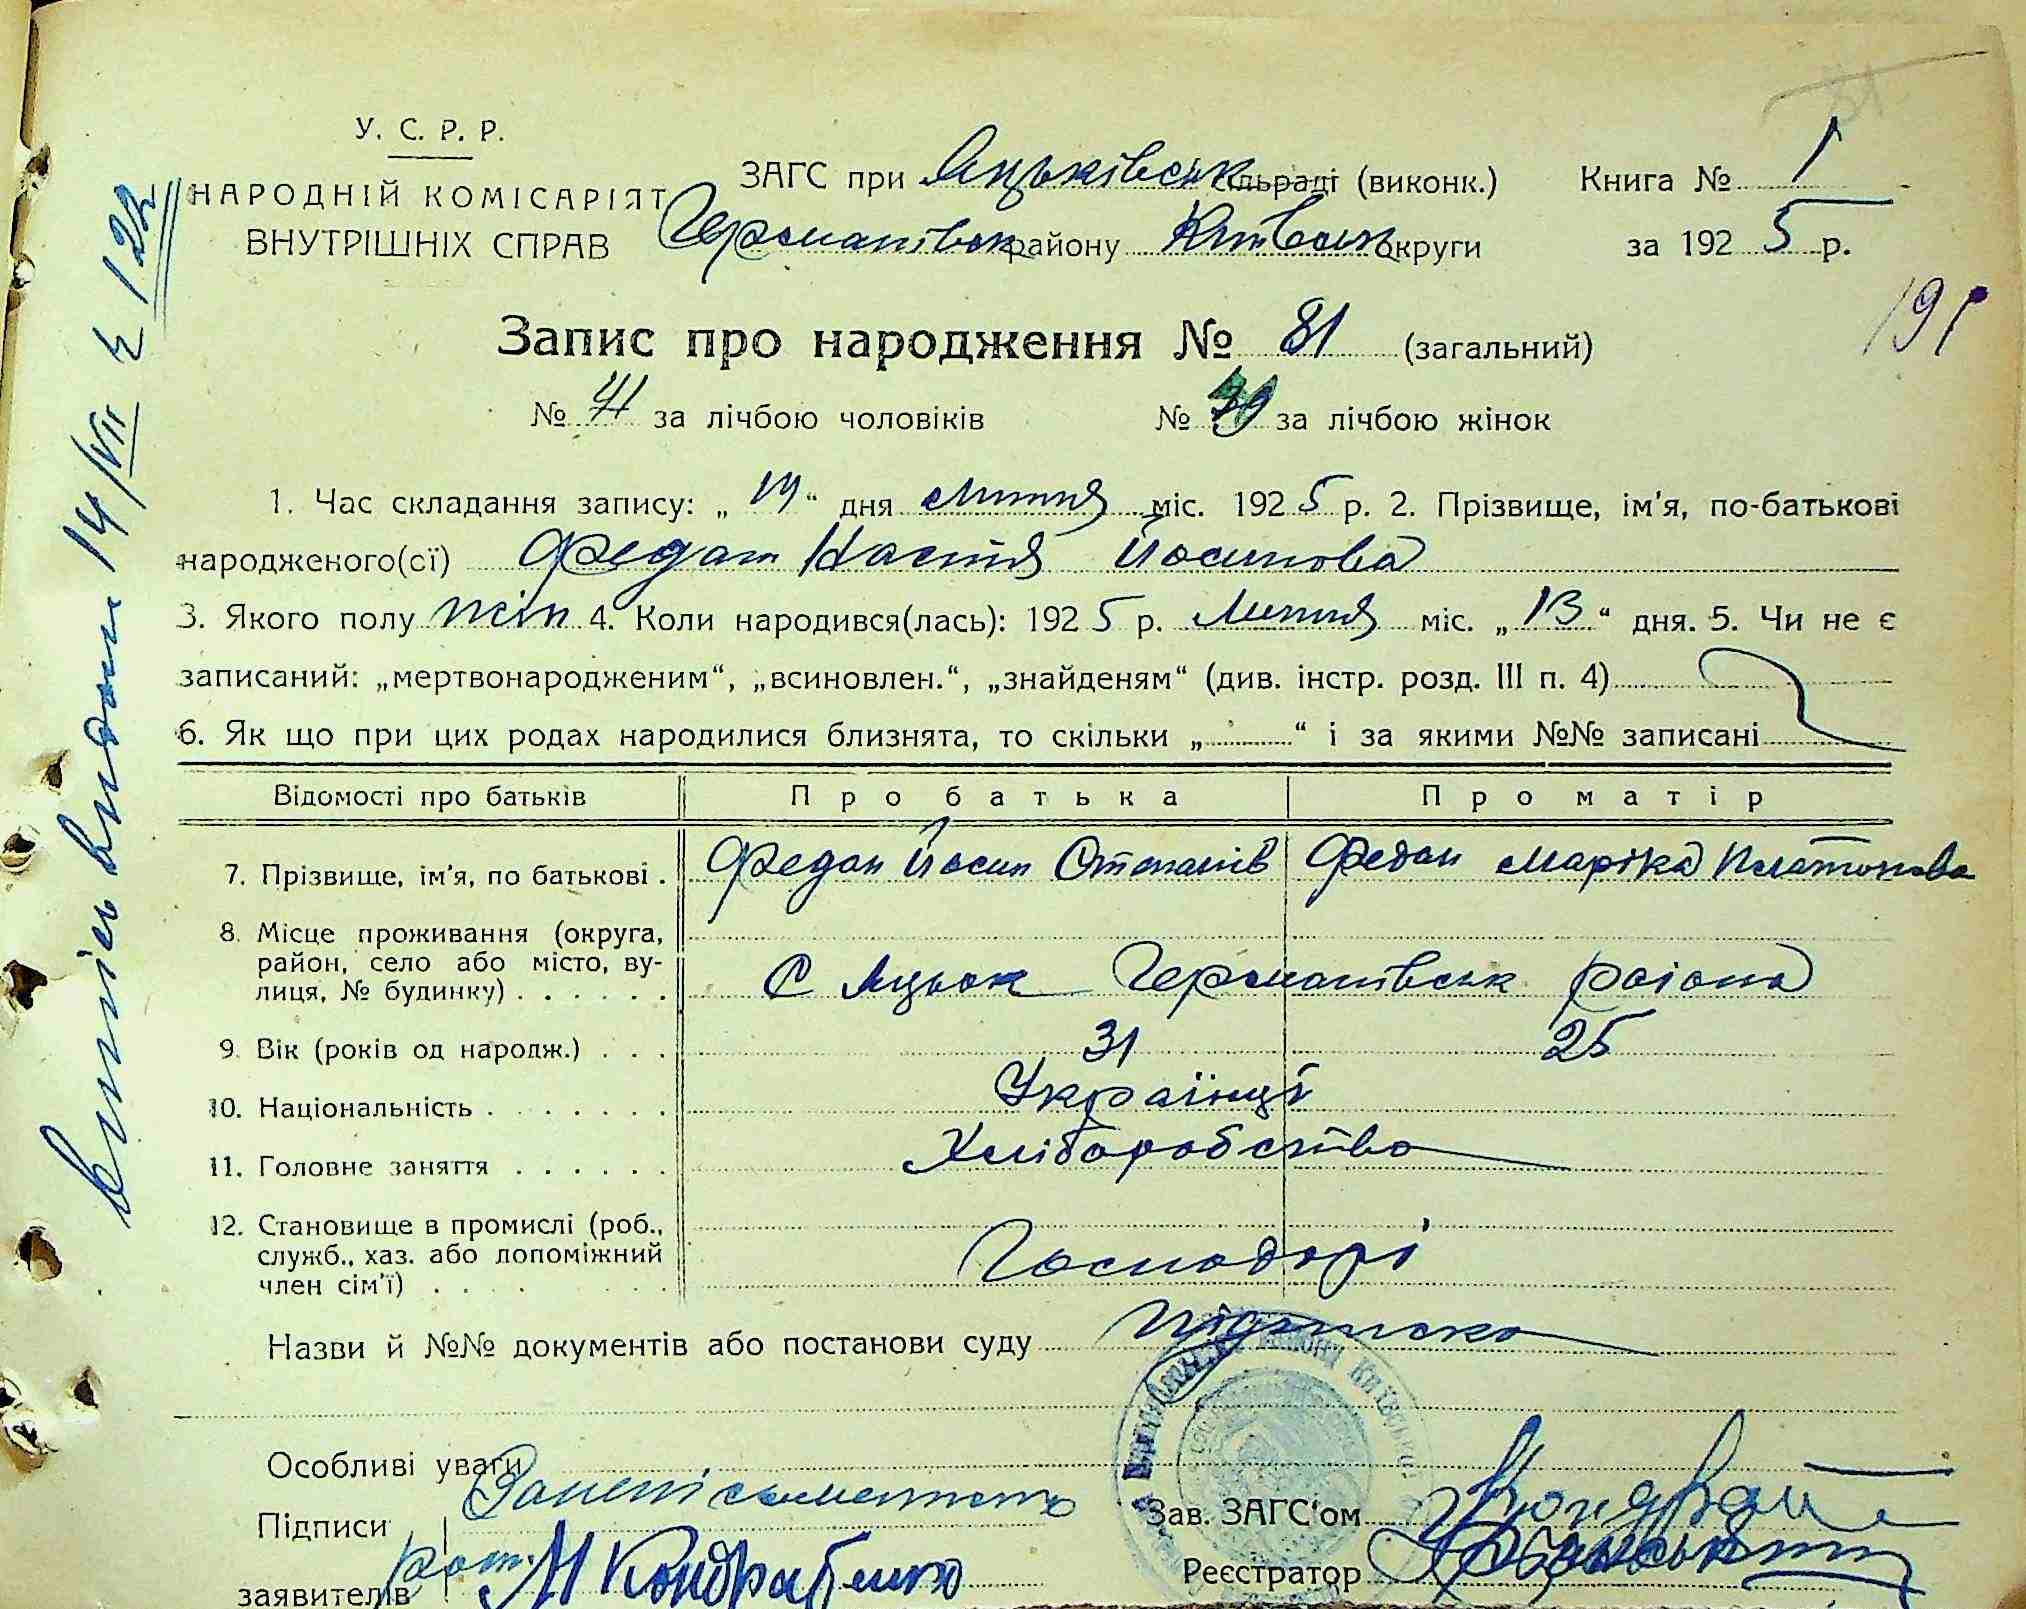 У. С. Р. Р.
НАРОДНІЙ КОМІСАРІЯТ
ВНУТРІШНІХ СПРАВ
ЗАГС при Яцьківськ сільраді (виконк.) Книга № 1
Германівськ району Київськ округи за 1925 р.
191
Запис про народження № 81 (загальний)
№ 41 за лічбою чоловіків № за лічбою жінок
1. Час складання запису: „14“ дня липня міс. 1925 р. 2. Прізвище, ім'я, по-батькові
народженого(сї) Федан Настя Йосипова
3. Якого полу жін 4. Коли народився(лась): 1925 р. Липня міс. „13“ дня. 5. Чи не є
записаний: „мертвонародженим“, „всиновлен.“, „знайденям“ (див. інстр. розд. III п. 4)
6. Як що при цих родах народилися близнята, то скільки „ “ і за якими №№ записані
Відомості про батьків Про батька Про матір
7. Прізвище, ім'я, по батькові . Федан Йосип Степанів Федан Марika Платонова
8. Місце проживання (округа,
район, село або місто, ву-
лиця, № будинку) . . . . . С Яцьок Германівськ района
9. Вік (років од народж.) . . . 31 25
10. Національність . . . . . . . Українці
11. Головне заняття . . . . . . Хліборобство
12. Становище в промислі (роб.,
служб., хаз. або допоміжний
член сім'ї) . . . Господарі
Назви й №№ документів або постанови суду підписка
Особливі уваги
Підписи За неписьменного
заявителів М Кондратенко
Зав. ЗАГС'ом
Реєстратор
Випись видат 14/VII № 122